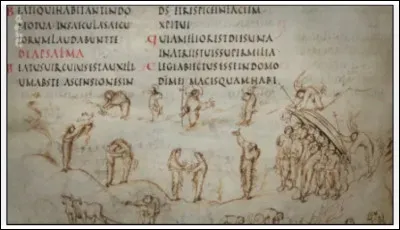 BEATIQUIHABITANTINDO
MOTUAINSAECULASAECU
LORUMLAUDABUNTTE
DIAPSALMA
BEATUSUIRCUIUSESTAUXILI
UMABSTEASCENSIONESIN
DSETRESPICEINFACIEM
XPITUI
QUIAMELIORESTDIESUNA
INATRIISTUISSUPERMILIA
ELEGIABIECTUSESSEINDOMO
DIMEIMAGISQUAMHABI